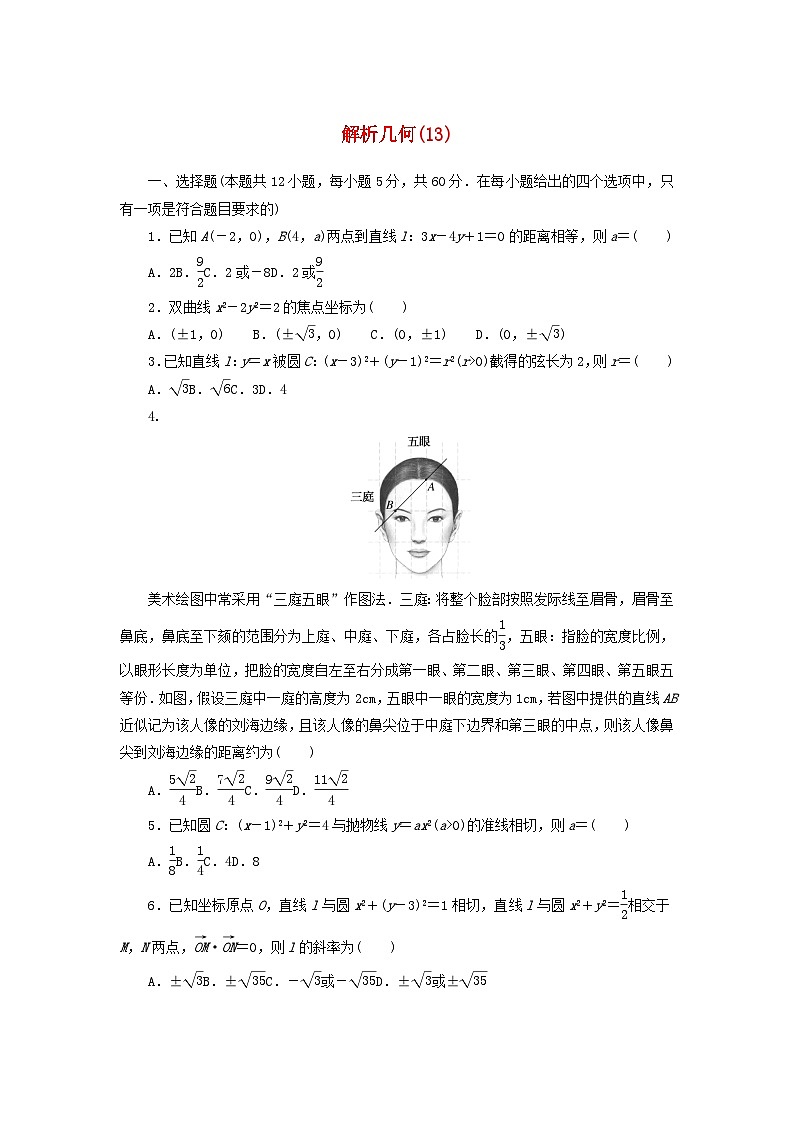 解析几何(13)
一、选择题(本题共12小题，每小题5分，共60分．在每小题给出的四个选项中，只
有一项是符合题目要求的)
1．已知A(－2，0)，B(4，a)两点到直线l：3x－4y＋1＝0的距离相等，则a＝(　　)
A．2B．$\frac{9}{2}$C．2或－8D．2或$\frac{9}{2}$
2．双曲线x²－2y²＝2的焦点坐标为(　　)
A．(±1，0)　　B．(±√3，0)　　C．(0，±1)　　D．(0，±√3)
3．已知直线l：y＝x被圆C：(x－3)²＋(y－1)²＝r²(r>0)截得的弦长为2，则r＝(　　)
A．√3B．√6C．3D．4
4．
五眼
三庭
A
B
美术绘图中常采用“三庭五眼”作图法．三庭：将整个脸部按照发际线至眉骨，眉骨至
鼻底，鼻底至下颏的范围分为上庭、中庭、下庭，各占脸长的$\frac{1}{3}$，五眼：指脸的宽度比例，
以眼形长度为单位，把脸的宽度自左至右分成第一眼、第二眼、第三眼、第四眼、第五眼五
等份．如图，假设三庭中一庭的高度为2cm，五眼中一眼的宽度为1cm，若图中提供的直线AB
近似记为该人像的刘海边缘，且该人像的鼻尖位于中庭下边界和第三眼的中点，则该人像鼻
尖到刘海边缘的距离约为(　　)
A．$\frac{5\sqrt{2}}{4}$B．$\frac{7\sqrt{2}}{4}$C．$\frac{9\sqrt{2}}{4}$D．$\frac{11\sqrt{2}}{4}$
5．已知圆C：(x－1)²＋y²＝4与抛物线y＝ax²(a>0)的准线相切，则a＝(　　)
A．$\frac{1}{8}$B．$\frac{1}{4}$C．4D．8
6．已知坐标原点O，直线l与圆x²＋(y－3)²＝1相切，直线l与圆x²＋y²＝$\frac{1}{2}$相交于
M，N两点，$\overrightarrow{OM}$·$\overrightarrow{ON}$＝0，则l的斜率为(　　)
A．±√3B．±√35C．－√3或－√35D．±√3或±√35